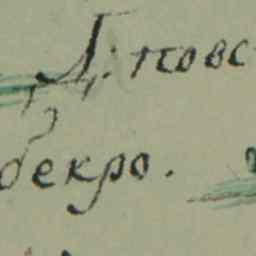 Д: повс
бекро.